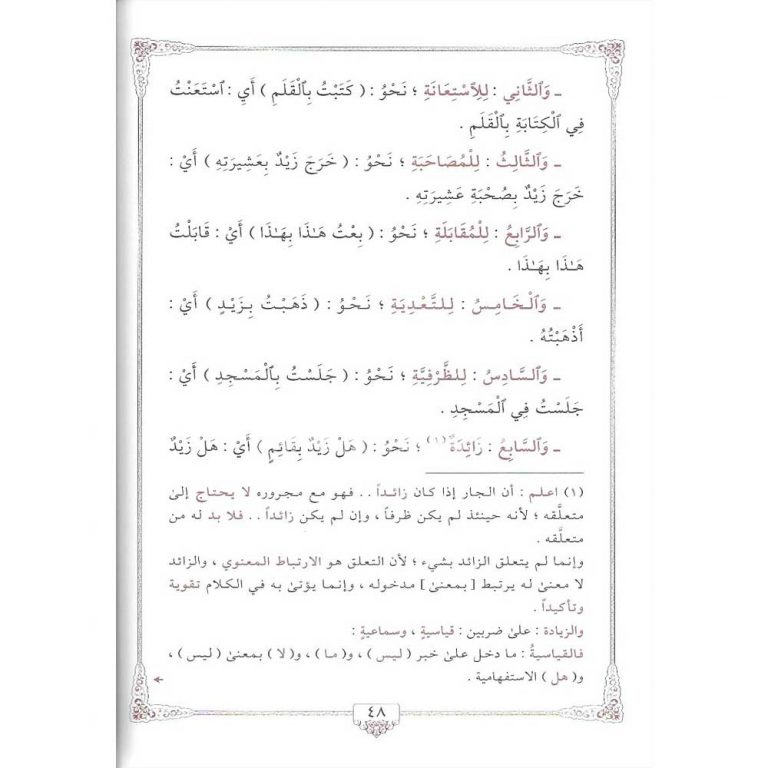 ـ وَٱلثَّانِي : لِلِاسْتِعَانَةِ ؛ نَحْوُ : ( كَتَبْتُ بِٱلْقَلَمِ ) أَيِ : ٱسْتَعَنْتُ
فِي ٱلْكِتَابَةِ بِٱلْقَلَمِ .
ـ وَٱلثَّالِثُ : لِلْمُصَاحَبَةِ ؛ نَحْوُ : ( خَرَجَ زَيْدٌ بِعَشِيرَتِهِ ) أَيْ :
خَرَجَ زَيْدٌ بِصُحْبَةِ عَشِيرَتِهِ .
ـ وَٱلرَّابِعُ : لِلْمُقَابَلَةِ ؛ نَحْوُ : ( بِعْتُ هَـٰذَا بِهَـٰذَا ) أَيْ : قَابَلْتُ
هَـٰذَا بِهَـٰذَا .
ـ وَٱلْخَامِسُ : لِلتَّعْدِيَةِ ؛ نَحْوُ : ( ذَهَبْتُ بِزَيْدٍ ) أَيْ :
أَذْهَبْتُهُ .
ـ وَٱلسَّادِسُ : لِلظَّرْفِيَّةِ ؛ نَحْوُ : ( جَلَسْتُ بِٱلْمَسْجِدِ ) أَيْ :
جَلَسْتُ فِي ٱلْمَسْجِدِ .
ـ وَٱلسَّابِعُ : زَائِدَةٌ (١) ؛ نَحْوُ : ( هَلْ زَيْدٌ بِقَائِمٍ ) أَيْ : هَلْ زَيْدٌ
(١) اعلم : أن الجار إذا كان زائداً . . فهو مع مجروره لا يحتاج إلىٰ
متعلَّقه ؛ لأنه حينئذ لم يكن ظرفاً ، وإن لم يكن زائداً . . فلا بد له من
متعلَّقه .
وإنما لم يتعلق الزائد بشيء ؛ لأن التعلق هو الارتباط المعنوي ، والزائد
لا معنىٰ له يرتبط [ بمعنىٰ ] مدخوله ، وإنما يؤتىٰ به في الكلام تقوية
وتأكيداً .
والزيادة : علىٰ ضربين : قياسيةٍ ، وسماعيةٍ :
فالقياسيةُ : ما دخل علىٰ خبر ( ليس ) ، و( ما ) ، و( لا ) بمعنىٰ ( ليس ) ،
و( هل ) الاستفهامية .
٤٨